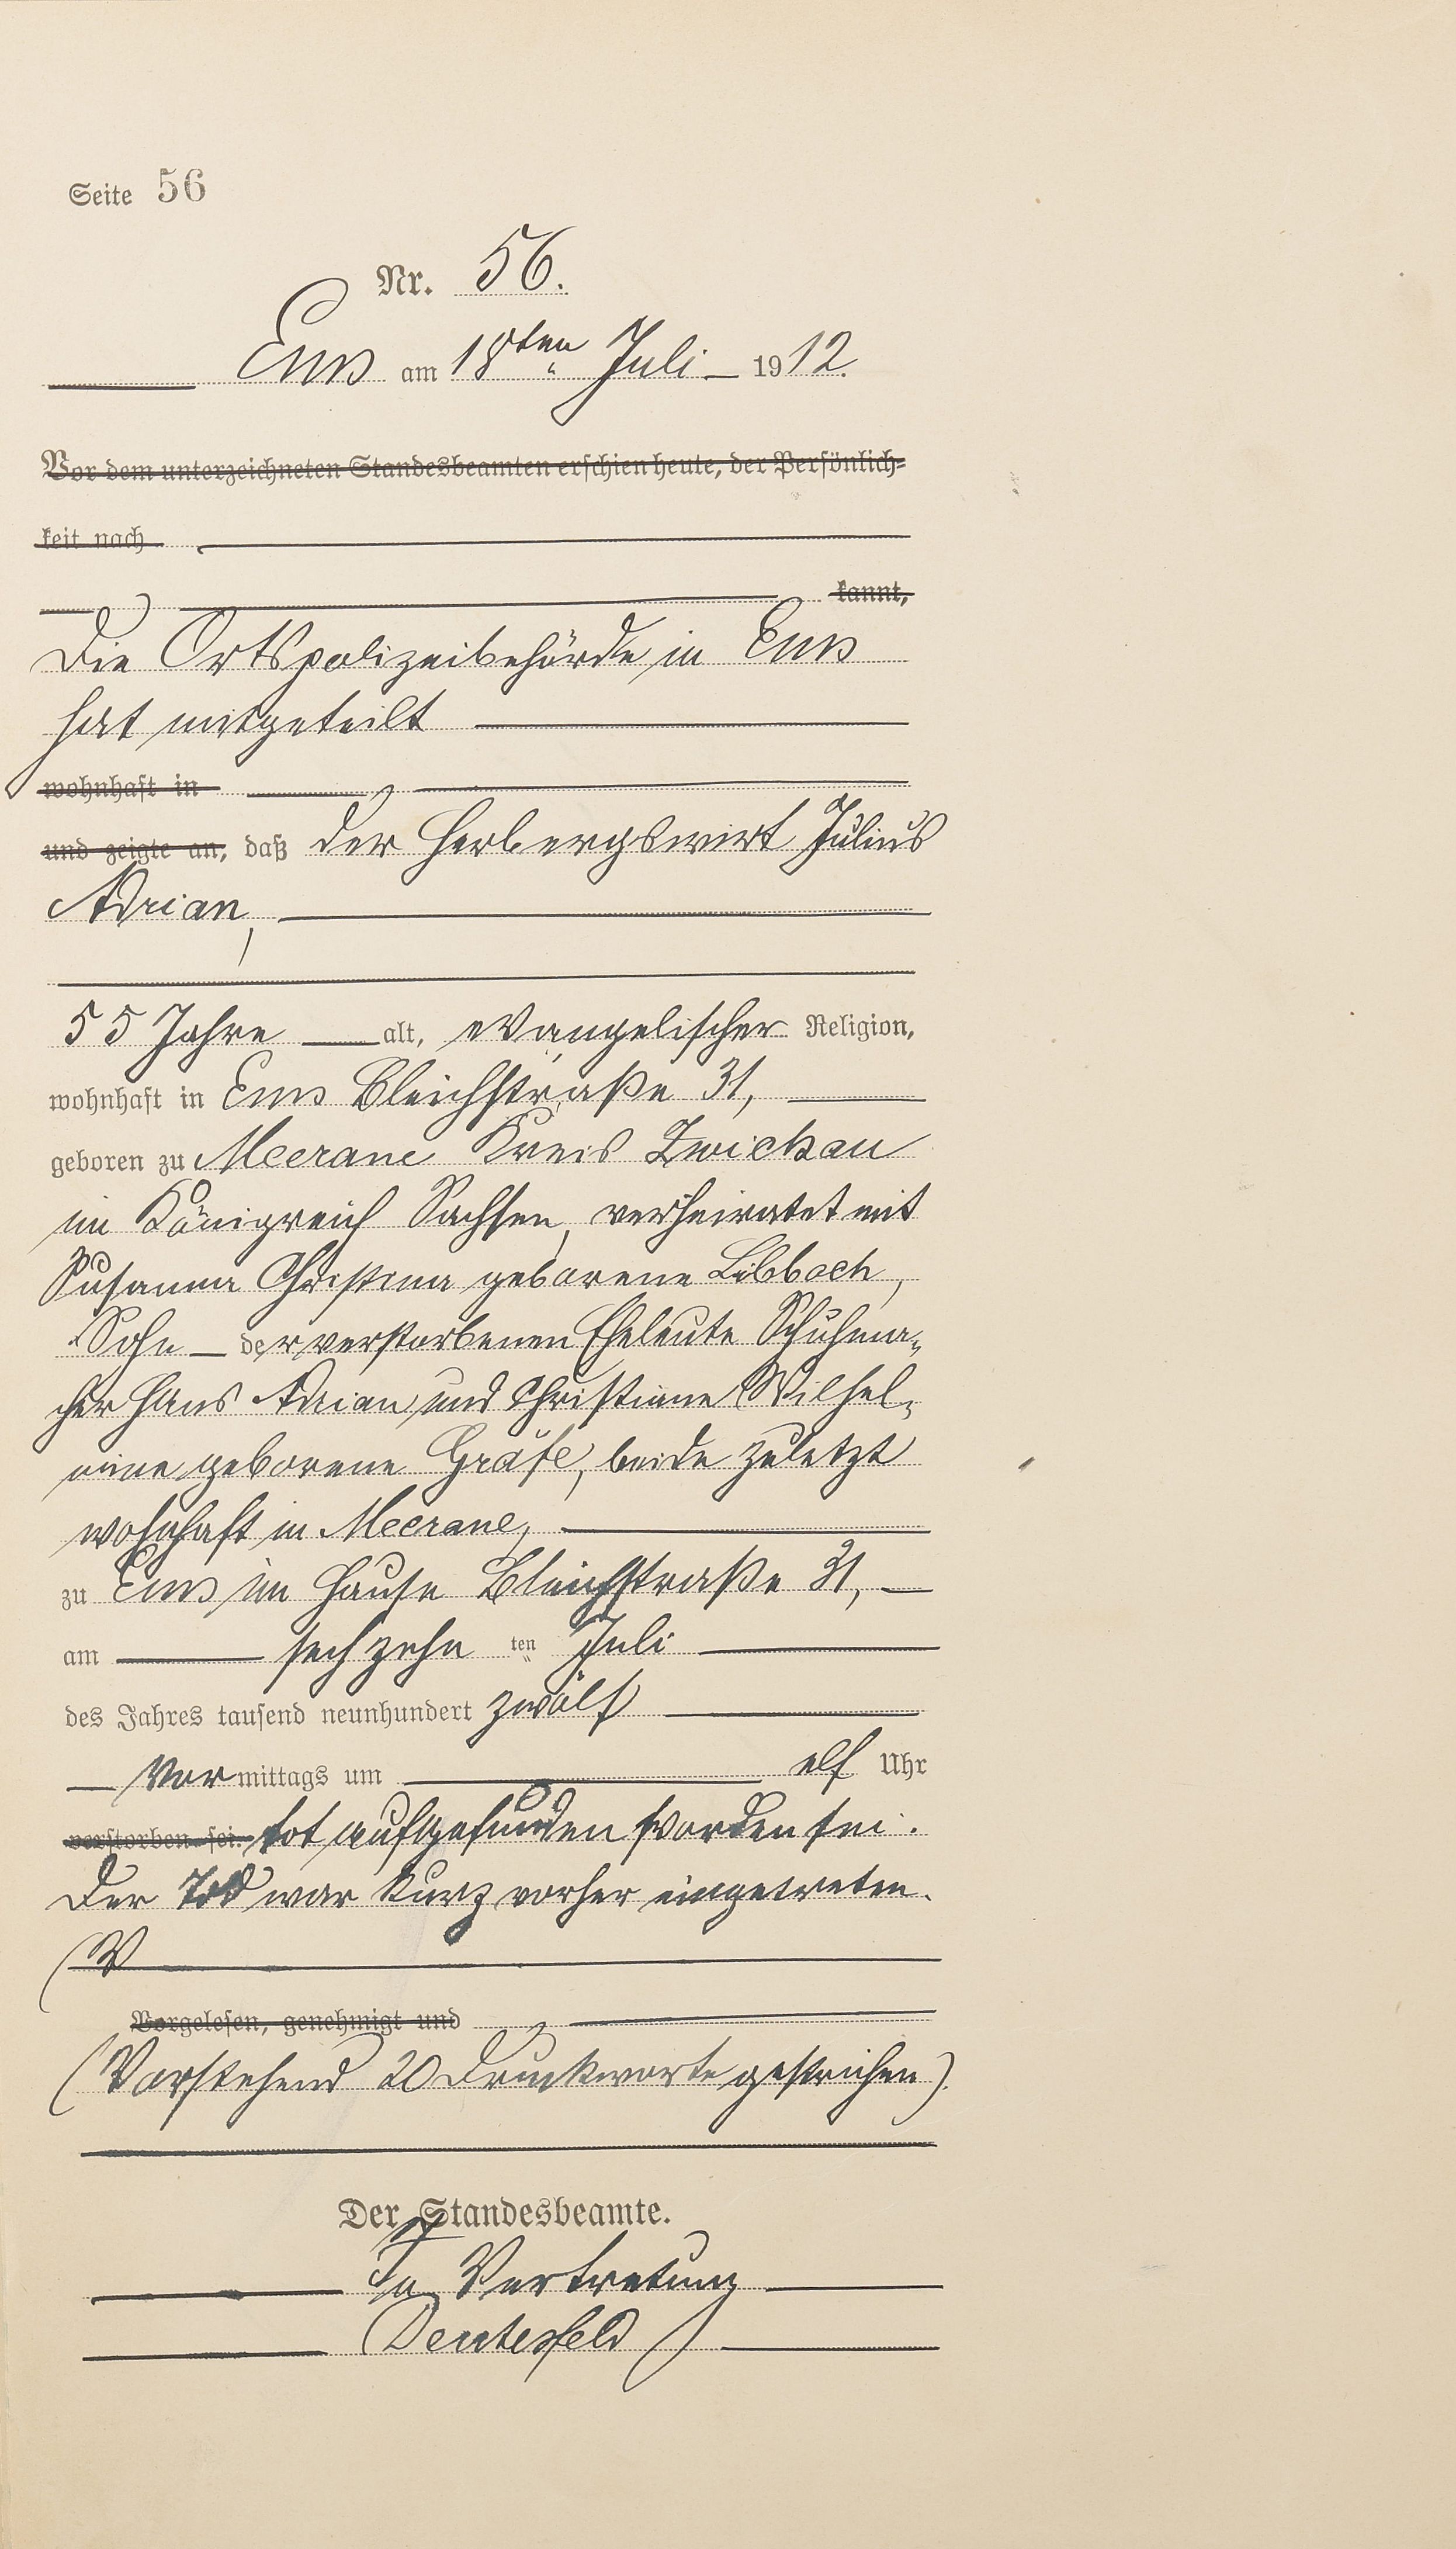 Seite 56
Nr. 56.
Ems am 18ten Juli 1912.
Vor dem unterzeichneten Standesbeamten erschien heute, der Persönlich-
keit nach
kannt,
Die Ortspolizeibehörde in Ems
hat mitgeteilt
wohnhaft in
und zeigte an, daß der Herbergswirt Julius
Adrian,
55 Jahre alt, evangelischer Religion,
wohnhaft in Ems Bleichstraße 31,
geboren zu Meerane Kreis Zwickau
im Königreich Sachsen, verheiratet mit
Susanna Christina geborene Libbach,
Sohn der verstorbenen Eheleute Schuhma-
cher Hans Adrian und Christiane Wilhel-
mine geborene Gräfe, beide zuletzt
wohnhaft in Meerane,
zu Ems im Hause Bleichstraße 31,
am sechzehnten Juli
des Jahres tausend neunhundert zwölf
Vormittags um elf Uhr
verstorben sei. tot aufgefunden worden sei.
Der Tod war kurz vorher eingetreten.
Vorgelesen, genehmigt und
(Vorstehend 20 Druckworte gestrichen).
Der Standesbeamte.
In Vertretung